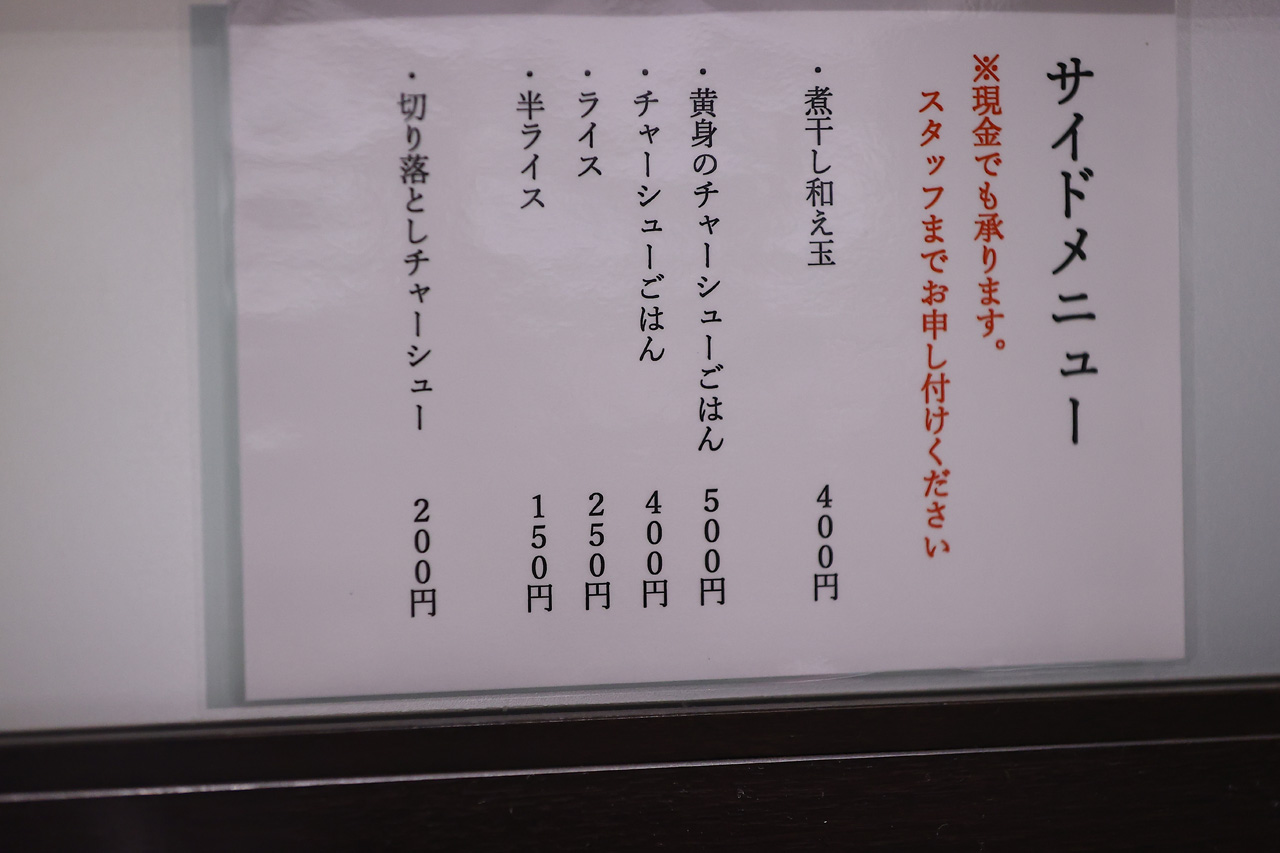 サイドメニュー
※現金でも承ります。
スタッフまでお申し付けください
・煮干し和え玉 400円
・黄身のチャーシューごはん 500円
・チャーシューごはん 400円
・ライス 250円
・半ライス 150円
・切り落としチャーシュー 200円